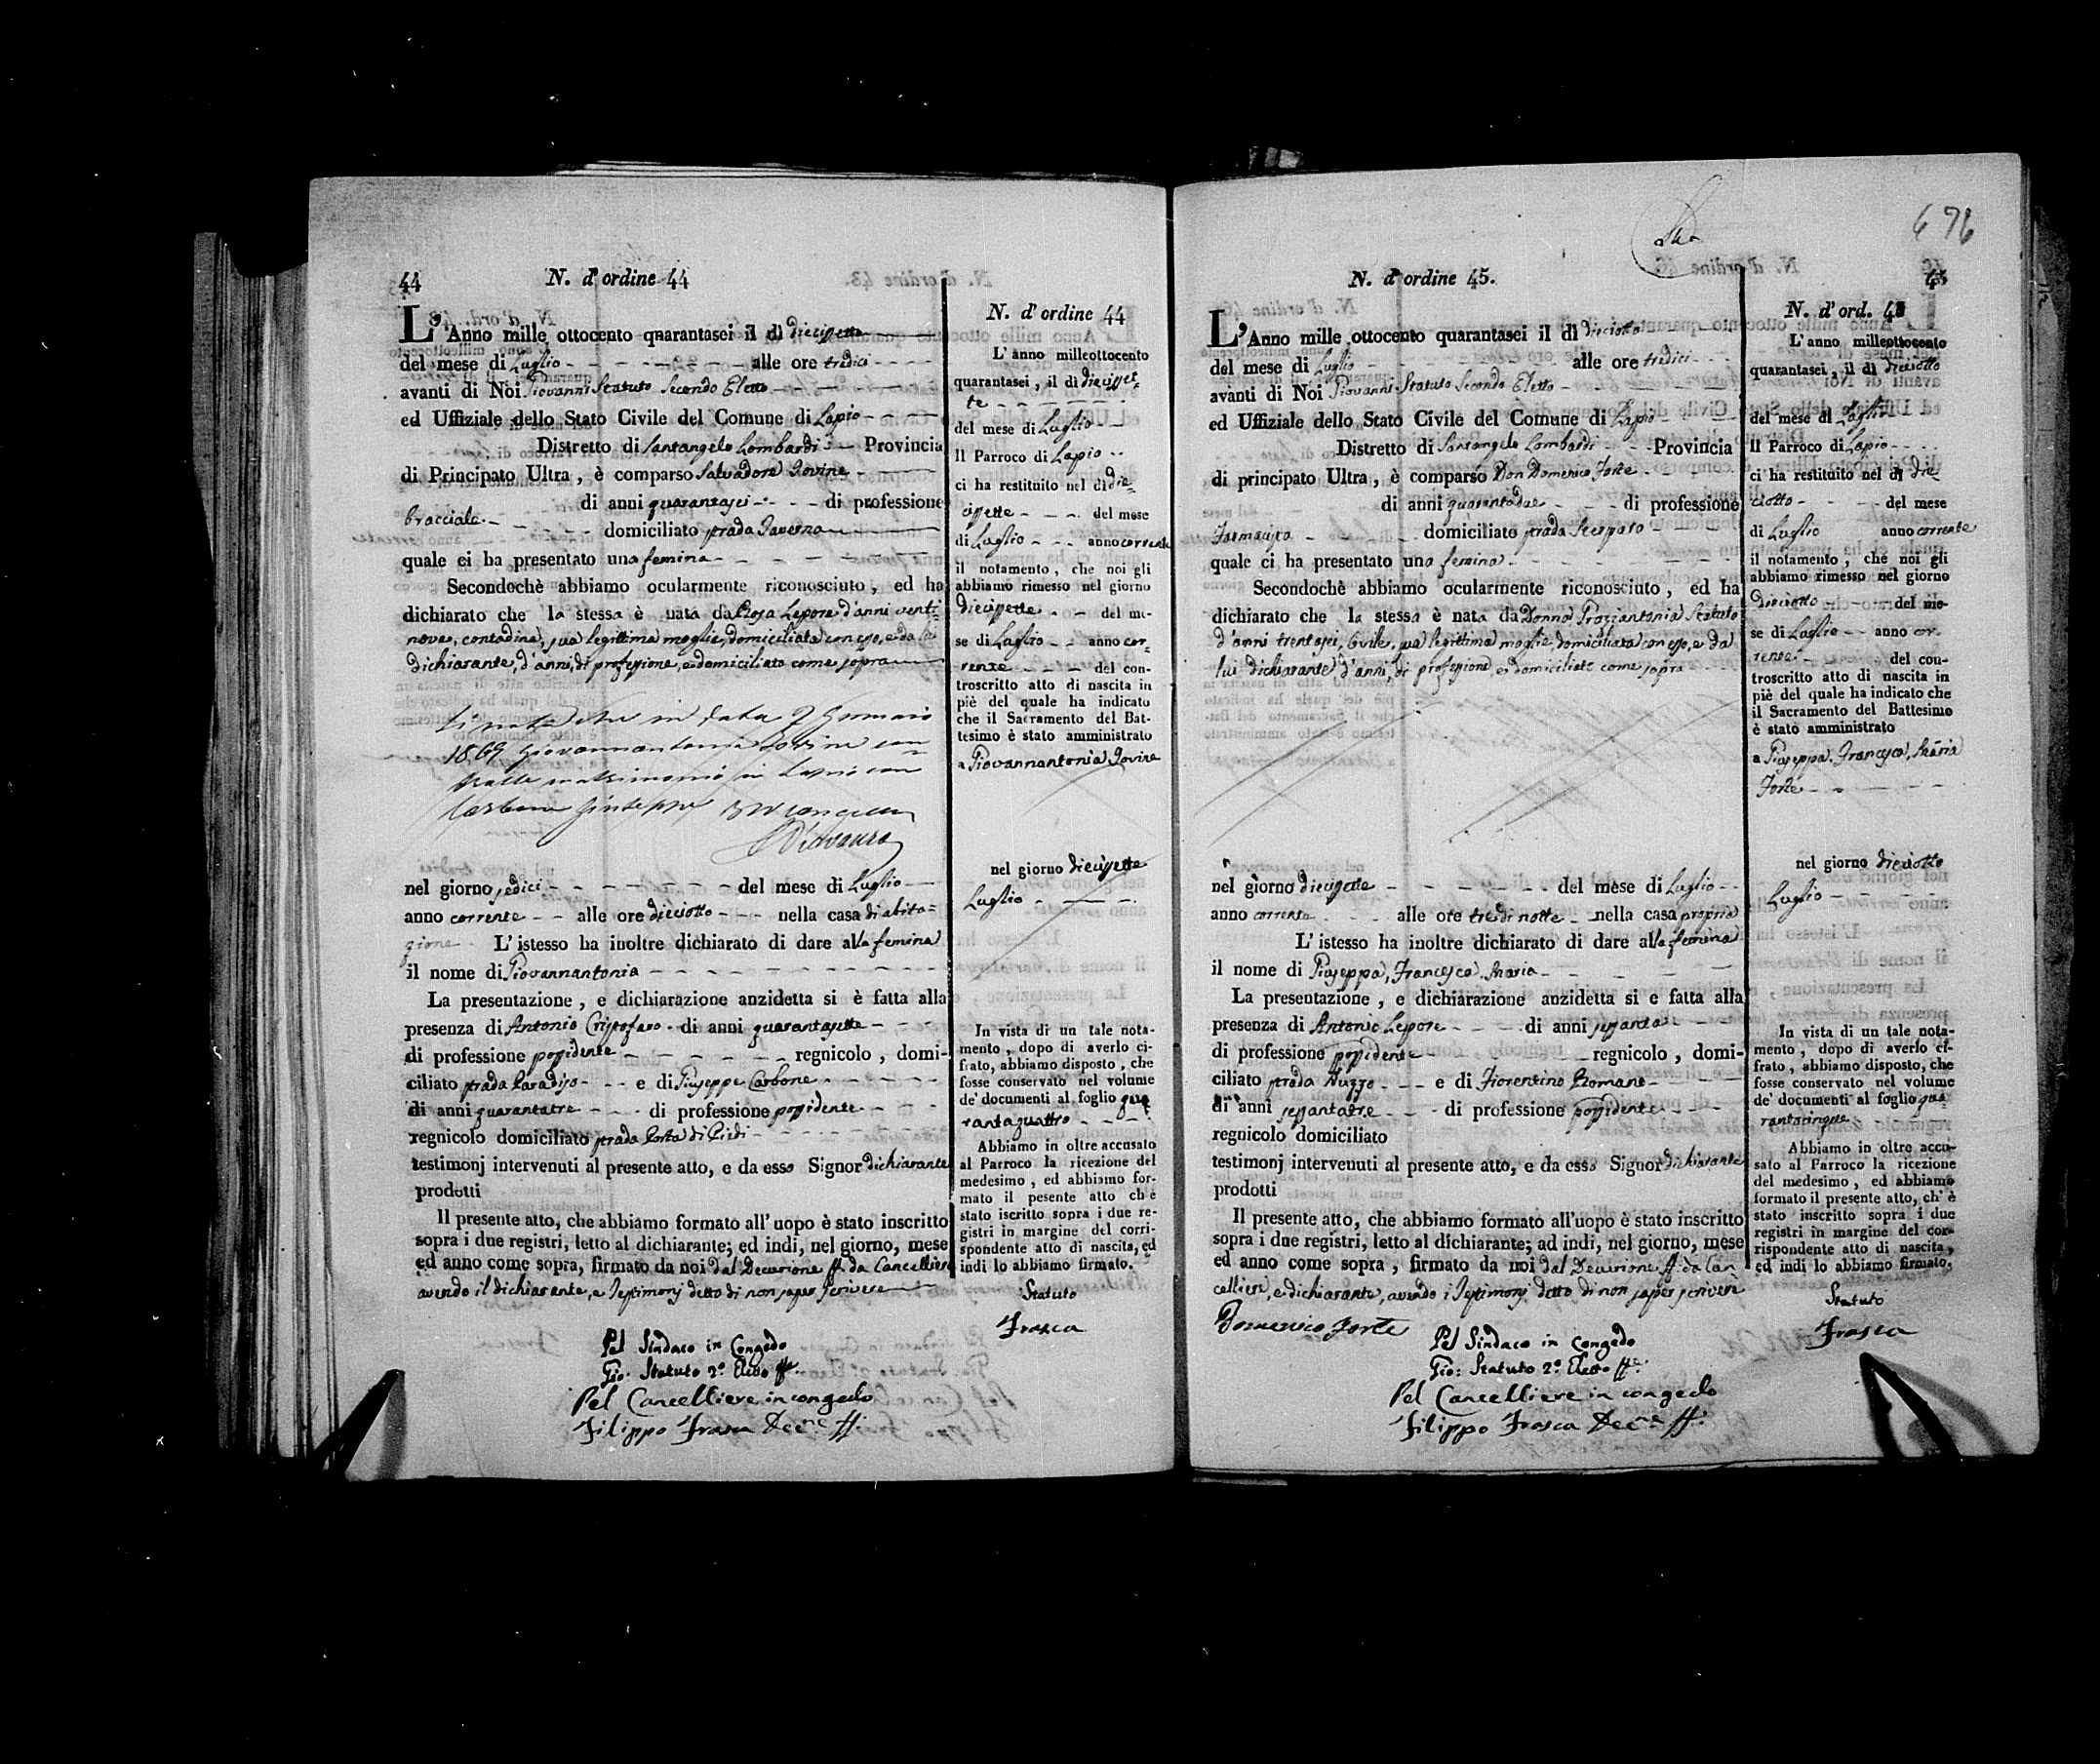 44
N. d'ordine 44
L'Anno mille ottocento quarantasei il dì diecissette
del mese di Luglio alle ore tredici
avanti di Noi Giovanni Statuto Secondo Eletto
ed Uffiziale dello Stato Civile del Comune di Lapio
Distretto di Santangelo Lombardi Provincia
di Principato Ultra, è comparso Salvadore Iovine
di anni quarantasei di professione
bracciale domiciliato strada Taverna
quale ci ha presentato una femina
Secondochè abbiamo ocularmente riconosciuto, ed ha
dichiarato che la stessa è nata da Rosa Lepore d'anni venti
nove, contadina, sua legittima moglie, domiciliata con esso, e da lui
dichiarante, d'anni, di professione, e domiciliato come sopra
Si nota che in data 7 Gennaio
1869 Giovannantonia Iovine con
trasse matrimonio in Lapio con
Carbone Giuseppe
nel giorno sedici del mese di Luglio
anno corrente alle ore dieciotto nella casa di abita=
zione L'istesso ha inoltre dichiarato di dare alla femina
il nome di Giovannantonia
La presentazione, e dichiarazione anzidetta si è fatta alla
presenza di Antonio Cristofaro di anni quarantasette
di professione possidente regnicolo, domi-
ciliato strada Paradiso e di Giuseppe Carbone
di anni quarantatre di professione possidente
regnicolo domiciliato strada Porta di Piedi
testimonj intervenuti al presente atto, e da esso Signor dichiarante
prodotti
Il presente atto, che abbiamo formato all'uopo è stato inscritto
sopra i due registri, letto al dichiarante; ed indi, nel giorno, mese
ed anno come sopra, firmato da noi dal Decurione ff. da Cancelliere
avendo il dichiarante, e Testimonj detto di non saper scrivere
Pel Sindaco in Congedo
Gio: Statuto 2° Eletto ff.
Pel Cancelliere in congedo
Filippo Frasca Dec.ne ff.
N. d'ordine 44
L'anno milleottocento
quarantasei, il dì diecisset-
te
del mese di Luglio
Il Parroco di Lapio
ci ha restituito nel dì die=
cissette del mese
di Luglio anno corrente
il notamento, che noi gli
abbiamo rimesso nel giorno
diecissette del me-
se di Luglio anno cor=
rente del con-
troscritto atto di nascita in
piè del quale ha indicato
che il Sacramento del Bat-
tesimo è stato amministrato
a Giovannantonia Iovine
nel giorno diecissette
Luglio
In vista di un tale nota-
mento, dopo di averlo ci-
frato, abbiamo disposto, che
fosse conservato nel volume
de' documenti al foglio qua
rantaquattro
Abbiamo in oltre accusato
al Parroco la ricezione del
medesimo, ed abbiamo for-
mato il pesente atto ch'è
stato iscritto sopra i due re-
gistri in margine del corri-
spondente atto di nascita, ed
indi lo abbiamo firmato.
Statuto
Frasca
676
N. d'ordine 45.
45
L'Anno mille ottocento quarantasei il dì dieciotto
del mese di Luglio alle ore tredici
avanti di Noi Giovanni Statuto Secondo Eletto
ed Uffiziale dello Stato Civile del Comune di Lapio
Distretto di Santangelo Lombardi Provincia
di principato Ultra, è comparso Don Domenico Forte
di anni quarantadue di professione
domiciliato strada
quale ci ha presentato una femina
Secondochè abbiamo ocularmente riconosciuto, ed ha
dichiarato che la stessa è nata da Donna Graziantonia Statuto
d'anni trentasei, Civile, sua legittima moglie, domiciliata con esso, e da
lui dichiarante d'anni, di professione, e domiciliato come sopra
nel giorno diecissette del mese di Luglio
anno corrente alle ore tre di notte nella casa propria
L'istesso ha inoltre dichiarato di dare alla femina
il nome di Giuseppa, Francesca, Maria
La presentazione, e dichiarazione anzidetta si e fatta alla
presenza di Antonio Lepore di anni sessanta
di professione possidente regnicolo, domi-
ciliato strada Nuzzo e di Fiorentino Romano
di anni settantatre di professione possidente
regnicolo domiciliato
testimonj intervenuti al presente atto, e da esso Signor dichiarante
prodotti
Il presente atto, che abbiamo formato all'uopo è stato inscritto
sopra i due registri, letto al dichiarante; ad indi, nel giorno, mese
ed anno come sopra, firmato da noi dal Decurione ff. da Can
celliere, e dichiarante, avendo i Testimonj detto di non saper scrivere
Domenico Forte
Pel Sindaco in Congedo
Gio: Statuto 2° Eletto ff.
Pel Cancelliere in congedo
Filippo Frasca Dec.ne ff.
N. d'ord. 45
L'anno milleottocento
quarantasei, il dì dieciotto
del mese di Luglio
Il Parroco di Lapio
ci ha restituito nel dì die=
ciotto del mese
di Luglio anno corrente
il notamento, che noi gli
abbiamo rimesso nel giorno
dieciotto del me-
se di Luglio anno cor-
rente del con-
troscritto atto di nascita in
piè del quale ha indicato che
il Sacramento del Battesimo
è stato amministrato
a Giuseppa, Francesca, Maria
Forte
nel giorno dieciotto
Luglio
In vista di un tale nota-
mento, dopo di averlo ci-
frato, abbiamo disposto, che
fosse conservato nel volume
de' documenti al foglio qua
rantacinque
Abbiamo in oltre accu-
sato al Parroco la ricezione
del medesimo, ed abbiamo
formato il presente atto, ch'è
stato inscritto sopra i due
registri in margine del cor-
rispondente atto di nascita,
ed indi lo abbiamo firmato.
Statuto
Frasca